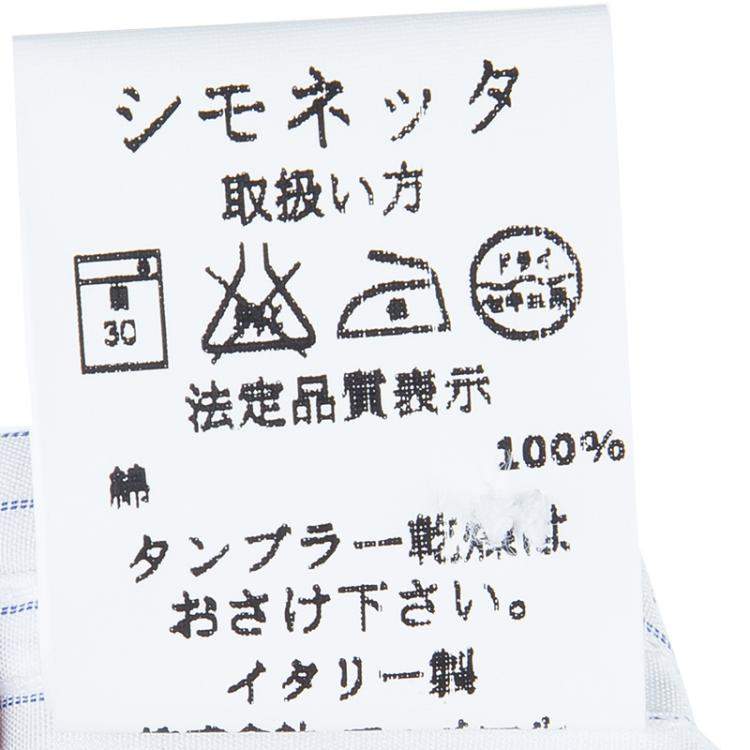 シモネッタ
取扱い方
弱 30
ドライ
セキユ系
法定品質表示
綿 100%
タンブラー乾燥は
おさけ下さい。
イタリー製